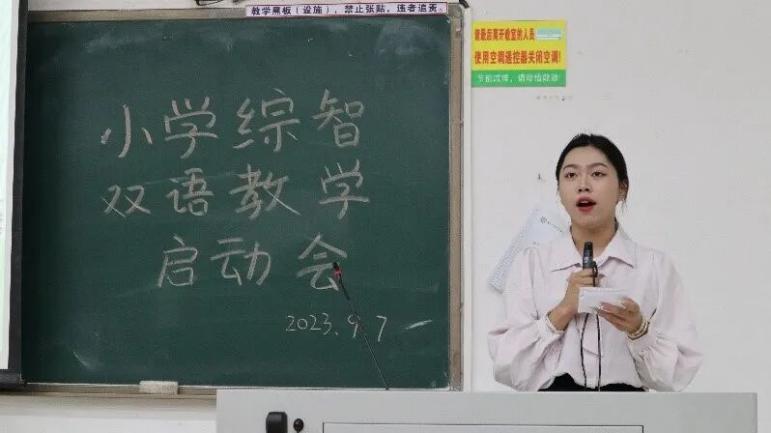 教学黑板（设施），禁止张贴，违者追责
请最后离开教室的人员
使用空调遥控器关闭空调！
小学综智
双语教学
启动会
2023.9.7